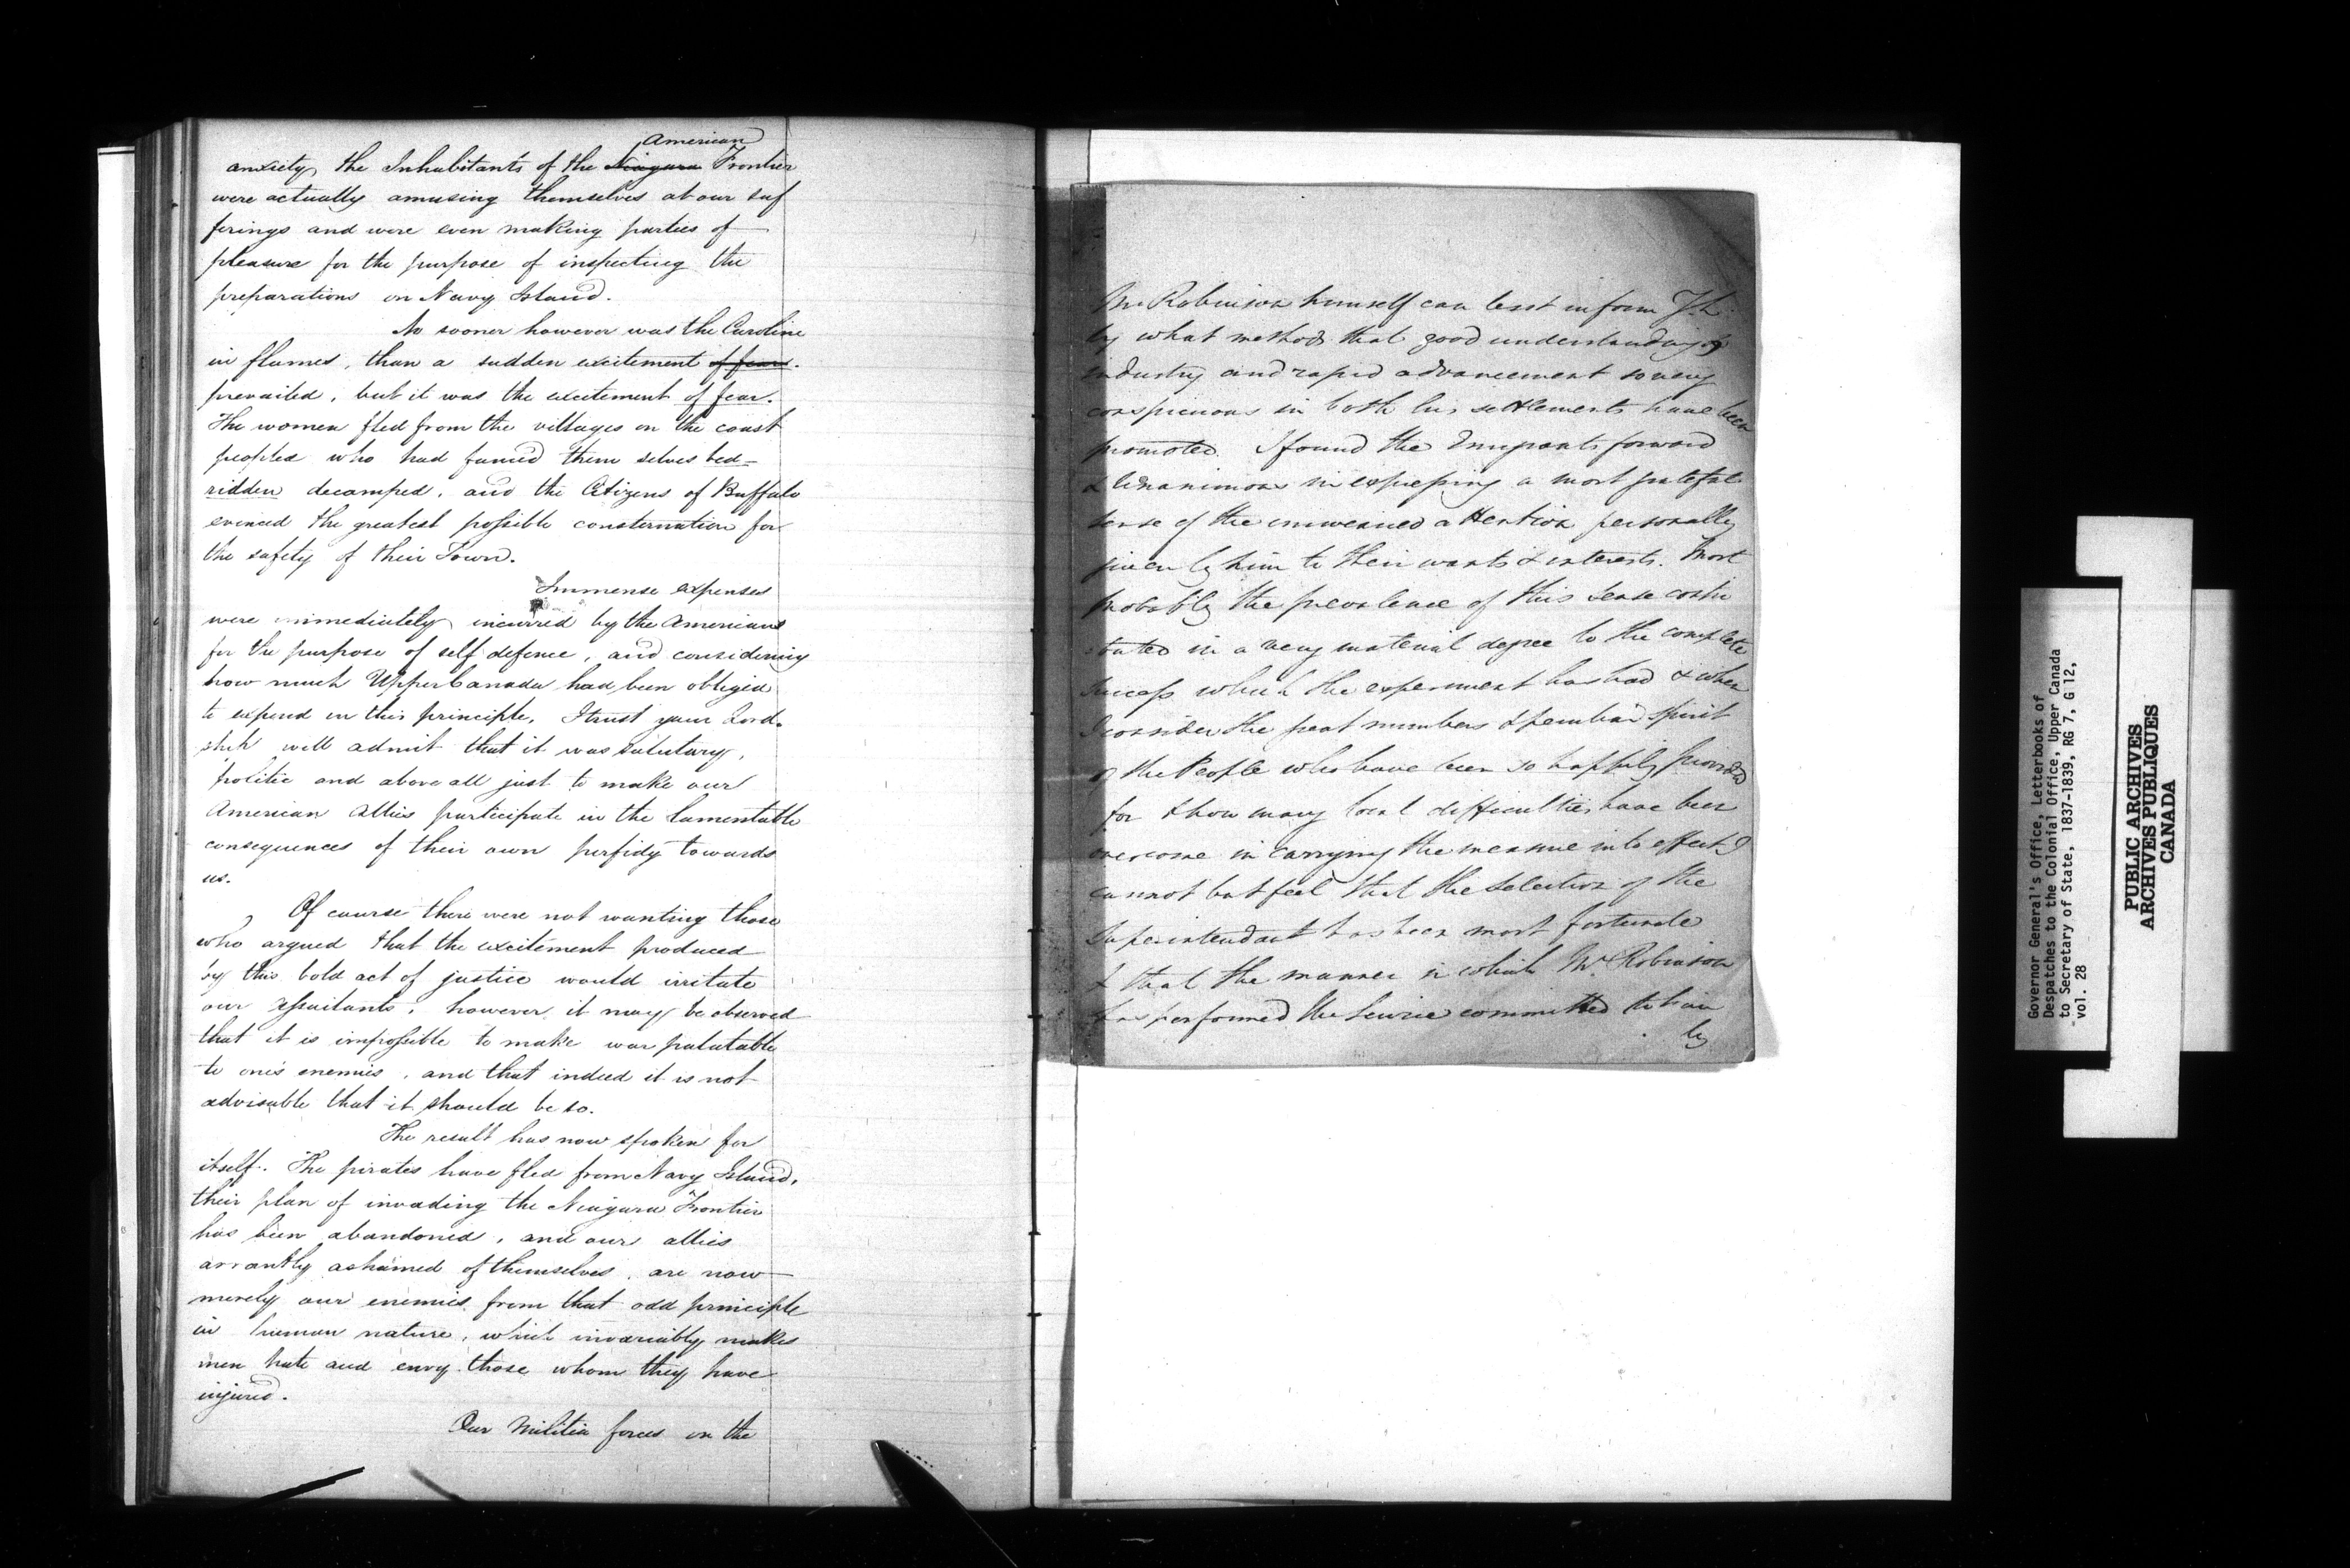 American
anxiety, the Inhabitants of the Niagara Frontier
were actually amusing themselves at our suf
ferings and were even making parties of
pleasure for the purpose of inspecting the
preparations on Navy Island.
No sooner however was the Caroline
in flames, than a sudden excitement of fear.
prevailed, but it was the excitement of fear.
The women fled from the villages on the coast
peoples who had fancied them selves bed-
ridden decamped, and the Citizens of Buffalo
evinced the greatest possible consternation for
the safety of their Town.
Immense expenses
were immediately incurred by the Americans
for the purpose of self defence, and considering
how much Upper Canada had been obliged
to expend on this principle, I trust your Lord-
ship will admit that it was salutary,
politic and above all just to make our
American Allies participate in the lamentable
consequences of their own perfidy towards
us.
Of course there were not wanting those
who argued that the excitement produced
by this bold act of justice would irritate
our assailants, however, it may be observed
that it is impossible to make war palatable
to one's enemies, and that indeed it is not
advisable that it should be so.
The result has now spoken for
itself. The pirates have fled from Navy Island,
their plan of invading the Niagara Frontier
has been abandoned, and our allies
arrantly ashamed of themselves, are now
merely our enemies from that odd principle
in human nature, which invariably makes
men hate and envy those whom they have
injured.
Our Militia forces on the
Mr Robinson himself can best inform Y.L.
by what methods that good understanding of
industry and rapid advancement so very
conspicuous in both his settlements have been
promoted. I found the Emigrants forward
& Unanimous in expressing a most grateful
sense of the unwearied attention personally
given by him to their wants & interests. Most
probably the prevalence of this sense contri
buted in a very material degree to the complete
success which the experiment has had & when
I consider the great numbers & peculiar spirit
of the People who have been so happily provided
for & how many local difficulties have been
overcome in carrying the measure into effect I
cannot but feel that the Selection of the
Superintendant has been most fortunate
& that the manner in which Mr Robinson
has performed the Service committed to him
by
Governor General's Office, Letterbooks of
Despatches to the Colonial Office, Upper Canada
to Secretary of State, 1837-1839, RG 7, G 12,
vol. 28
PUBLIC ARCHIVES
ARCHIVES PUBLIQUES
CANADA